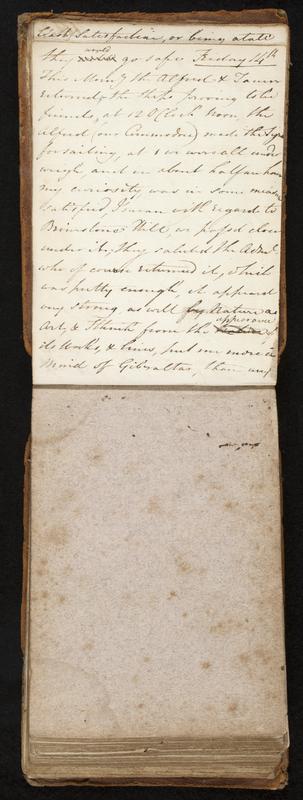 least satisfaction, or being a state
they would go safe Friday 14th
This Morng the Alfred & 
returned, & the ships proving to be
friends, at 12 O'Clock Noon, the
Alfred (our Commodore) made the Signal
for sailing, at 1 we were all under
weigh, and in about half an hour
my curiosity was in some measure
satisfied, I mean with regard to
Brimstone Hill, we passed close
under it, they saluted the Adml.
who of course returned it, which
was pretty enough, it appeared
very strong as well by Nature as
Art, & I think from the appearance of
its Works, & lines, put one more in
Mind of Gibraltar, than any